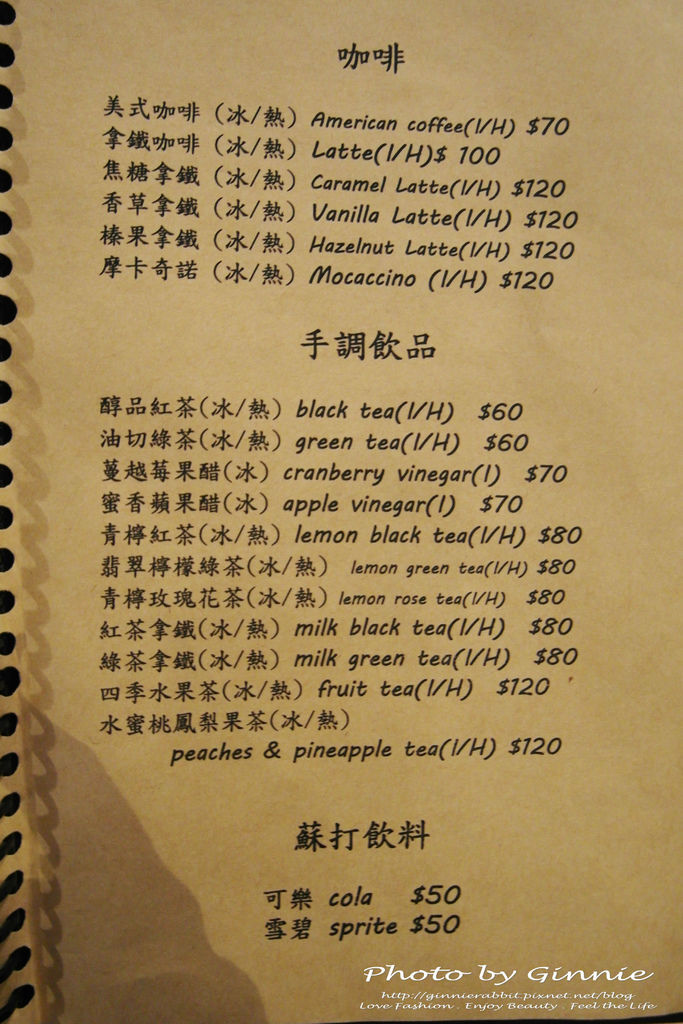 咖啡
美式咖啡 (冰/熱) American coffee(I/H) $70
拿鐵咖啡 (冰/熱) Latte(I/H)$ 100
焦糖拿鐵 (冰/熱) Caramel Latte(I/H) $120
香草拿鐵 (冰/熱) Vanilla Latte(I/H) $120
榛果拿鐵 (冰/熱) Hazelnut Latte(I/H) $120
摩卡奇諾 (冰/熱) Mocaccino (I/H) $120
手調飲品
醇品紅茶(冰/熱) black tea(I/H) $60
油切綠茶(冰/熱) green tea(I/H) $60
蔓越莓果醋(冰) cranberry vinegar(I) $70
蜜香蘋果醋(冰) apple vinegar(I) $70
青檸紅茶(冰/熱) lemon black tea(I/H) $80
翡翠檸檬綠茶(冰/熱) lemon green tea(I/H) $80
青檸玫瑰花茶(冰/熱) lemon rose tea(I/H) $80
紅茶拿鐵(冰/熱) milk black tea(I/H) $80
綠茶拿鐵(冰/熱) milk green tea(I/H) $80
四季水果茶(冰/熱) fruit tea(I/H) $120
水蜜桃鳳梨果茶(冰/熱)
peaches & pineapple tea(I/H) $120
蘇打飲料
可樂 cola $50
雪碧 sprite $50
Photo by Ginnie
http://ginnierabbit.pixnet.net/blog
Love Fashion . Enjoy Beauty . Feel the Life